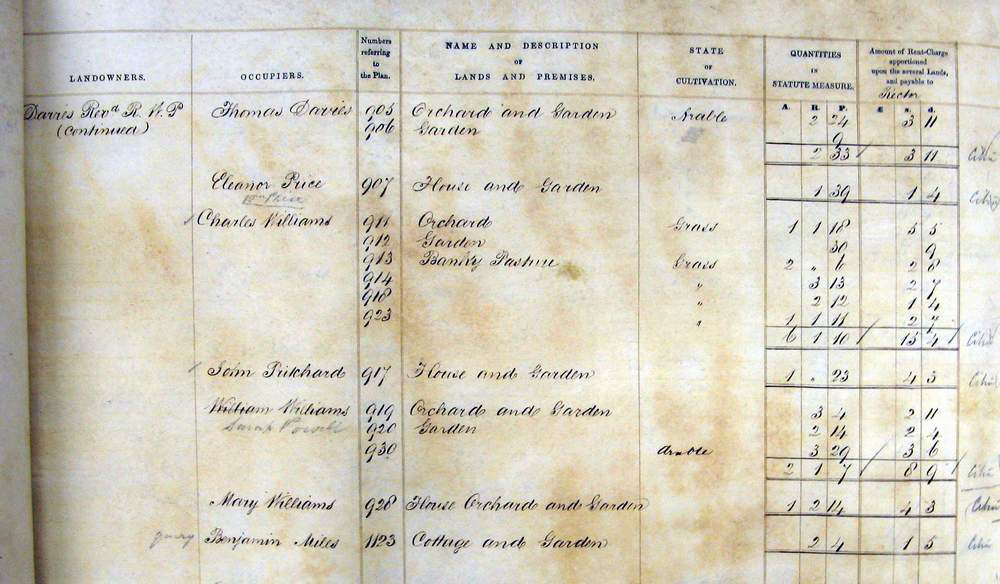 LANDOWNERS. OCCUPIERS. Numbers referring to the Plan. NAME AND DESCRIPTION OF LANDS AND PREMISES. STATE OF CULTIVATION. QUANTITIES IN STATUTE MEASURE. Amount of Rent-Charge apportioned upon the several Lands, and payable to Rector
A. R. P. £ s. d.
Davies Revd. R. W. P Thomas Davies 905 Orchard and Garden Arable 2 24 3 11
(continued) 906 Garden 9
2 33 3 11
Eleanor Price 907 House and Garden 1 39 1 4
Wm Price
Charles Williams 911 Orchard Grass 1 1 18 5 5
912 Garden 30 9
913 Banky Pasture Grass 2 " 6 2 8
914 " 3 13 2 7
918 " 2 12 1 4
923 " 1 1 11 2 7
6 1 10 15 4
John Pritchard 917 House and Garden 1 " 23 4 3
William Williams 919 Orchard and Garden 3 4 2 11
Sarah Powell 920 Garden 2 14 2 4
930 Arable 3 29 3 6
2 1 7 8 9
Mary Williams 928 House Orchard and Garden 1 2 14 4 3
query Benjamin Miles 1123 Cottage and Garden 2 4 1 5